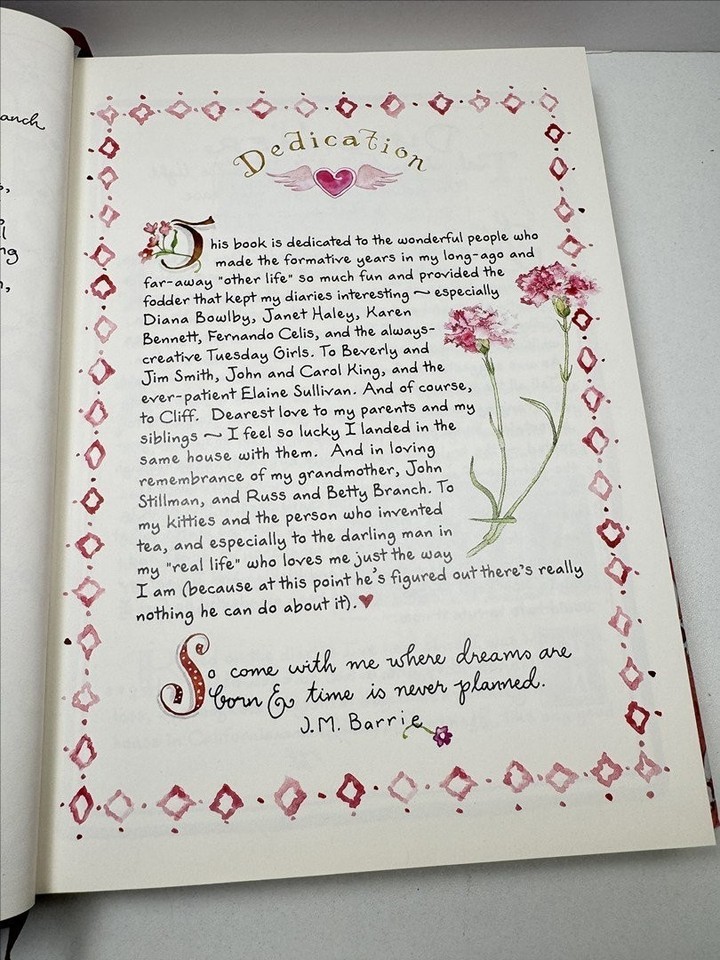 anch
ng
Dedication
This book is dedicated to the wonderful people who
made the formative years in my long-ago and
far-away "other life" so much fun and provided the
fodder that kept my diaries interesting ~ especially
Diana Bowlby, Janet Haley, Karen
Bennett, Fernando Celis, and the always-
creative Tuesday Girls. To Beverly and
Jim Smith, John and Carol King, and the
ever-patient Elaine Sullivan. And of course,
to Cliff. Dearest love to my parents and my
siblings ~ I feel so lucky I landed in the
same house with them. And in loving
remembrance of my grandmother, John
Stillman, and Russ and Betty Branch. To
my kitties and the person who invented
tea, and especially to the darling man in
my "real life" who loves me just the way
I am (because at this point he's figured out there's really
nothing he can do about it). ♥
So come with me where dreams are
born & time is never planned.
J.M. Barrie